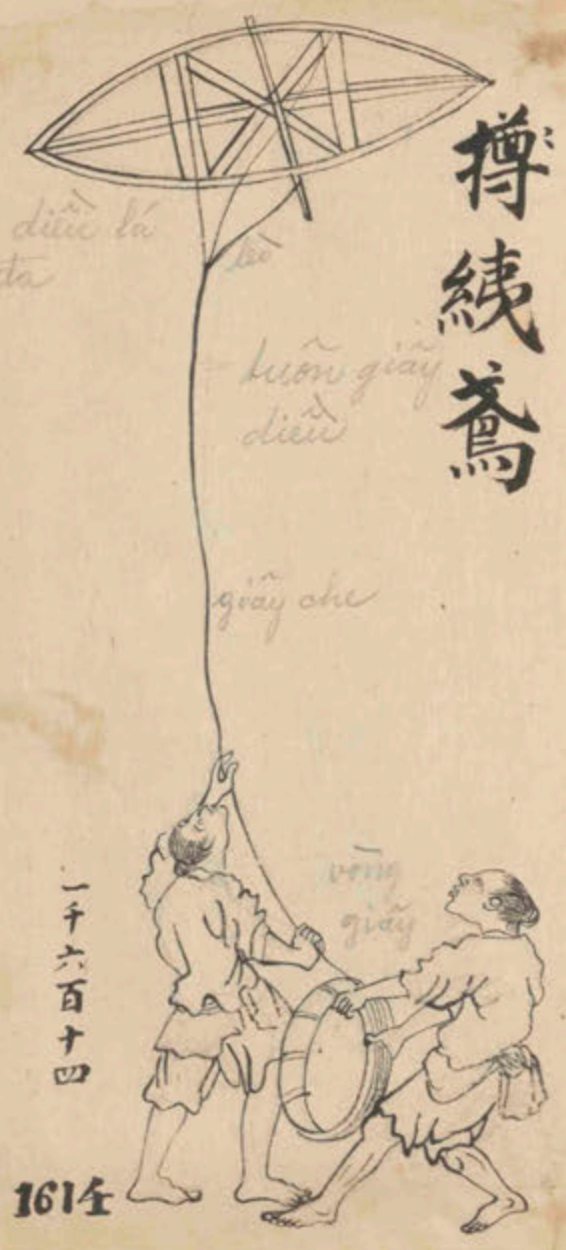 撙𦀊鳶
diều lá
đa
lèo
tuôn giây
diều
giây che
vòng
giây
一千六百十四
1614